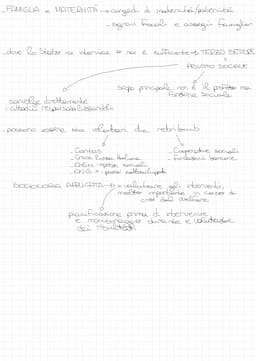 - FAMIGLIA e MATERNITÀ → congedi di maternità/paternità
→ sgravi fiscali e assegni famigliari
- dove lo Stato non interviene o non è sufficiente → TERZO SETTORE
PRIVATO SOCIALE
scopo principale non è il profitto ma
funzione sociale
coinvolge direttamente
i cittadini responsabilizzandoli
- possono essere sia volontari che retribuiti
- Caritas
- Croce Rossa Italiana
- ONLUS imprese sociali
- ONG → paesi sottosviluppati
- Cooperative sociali
- fondazioni bancarie
SOCIOLOGIA APPLICATA → x valutare gli interventi,
molto importante in caso di
crisi del Welfare
pianificazione prima di intervenire
e monitoraggio durante e valutazione
dei risultati